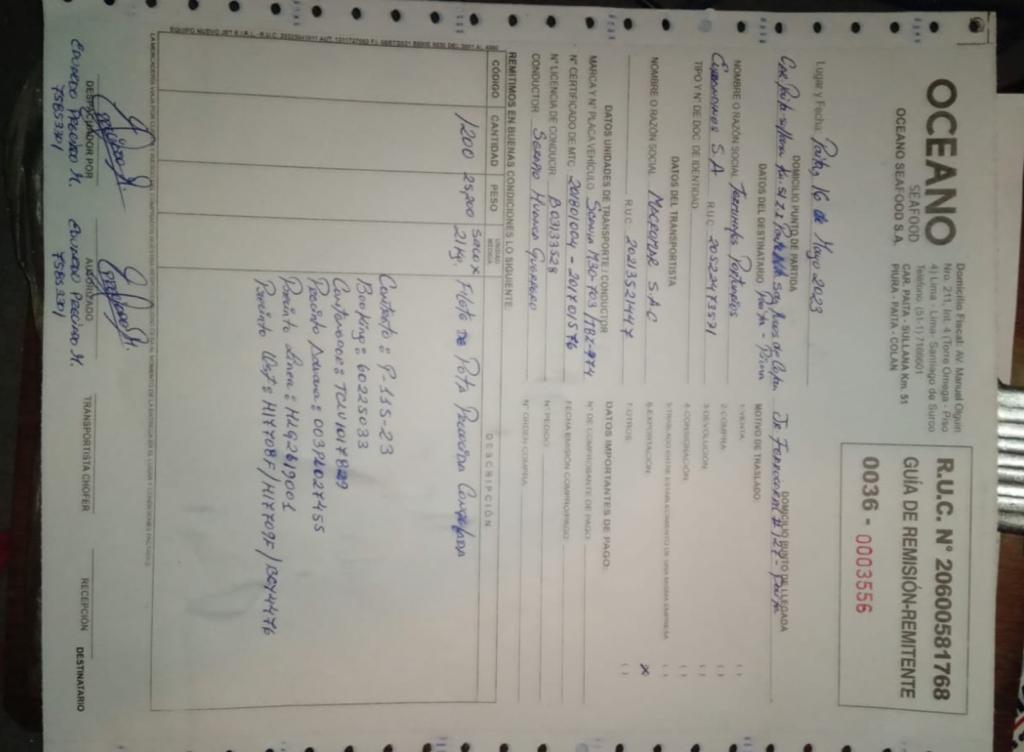 OCEANO
SEAFOOD
OCEANO SEAFOOD S.A.
Domicilio Fiscal: AV. Manuel Olguin
Nro 211, Int. 4 (Torre Omega - Piso
4) Lima - Lima - Santiago de Surco
Teléfono (51-1) 7166601
CAR. PAITA - SULLANA Km. 51
PIURA - PAITA - COLAN
R.U.C. N° 20600581768
GUÍA DE REMISIÓN-REMITENTE
0036 - 0003556
Lugar y Fecha: Paita, 16 de Mayo 2023
DOMICILIO PUNTO DE PARTIDA
DOMICILIO PUNTO DE LLEGADA
DATOS DEL DESTINATARIO
MOTIVO DE TRASLADO:
NOMBRE O RAZÓN SOCIAL Terminales Portuarios
Euroandinos S.A R.U.C. 20522473571
TIPO Y N° DE DOC DE IDENTIDAD
1-VENTA ( )
2-COMPRA ( )
3-DEVOLUCION ( )
4-CONSIGNACIÓN ( )
5-TRASLADO ENTRE ESTABLECIMIENTO DE UNA MISMA EMPRESA ( )
6-EXPORTACIÓN (x)
7-OTROS ( )
DATOS DEL TRANSPORTISTA
NOMBRE O RAZÓN SOCIAL S.A.C
R.U.C. 20213521447
DATOS UNIDADES DE TRANSPORTE / CONDUCTOR
MARCA Y N° PLACA VEHÍCULO Scania M3O-703 / TBZ-974
N° CERTIFICADO DE MTC 201801004 - 201701576
N° LICENCIA DE CONDUCIR B03133528
CONDUCTOR Huanca Guerrero
DATOS IMPORTANTES DE PAGO:
N° DE COMPROBANTE DE PAGO:
FECHA EMISIÓN COMPRO/PAGO:
N° PEDIDO:
N° ORDEN COMPRA:
REMITIMOS EN BUENAS CONDICIONES LO SIGUIENTE:
CÓDIGO CANTIDAD PESO UNIDAD MEDIDA DESCRIPCIÓN
1200 25,200 sacos x 21 kg. Filete de Pota Precocida Congelada
Contrato: P-115-23
Booking: 60225033
Contenedor: TCLU1017829
Precinto Aduana: 00396027455
Precinto Linea: HLG2619001
Precinto Usat: H17708F/H17709F/BC44476
DESPACHADOR POR
Edinson Pacheco M.
75853301
AUTORIZADO
Edinson Pacheco M.
75853301
TRANSPORTISTA CHOFER
RECEPCIÓN
DESTINATARIO